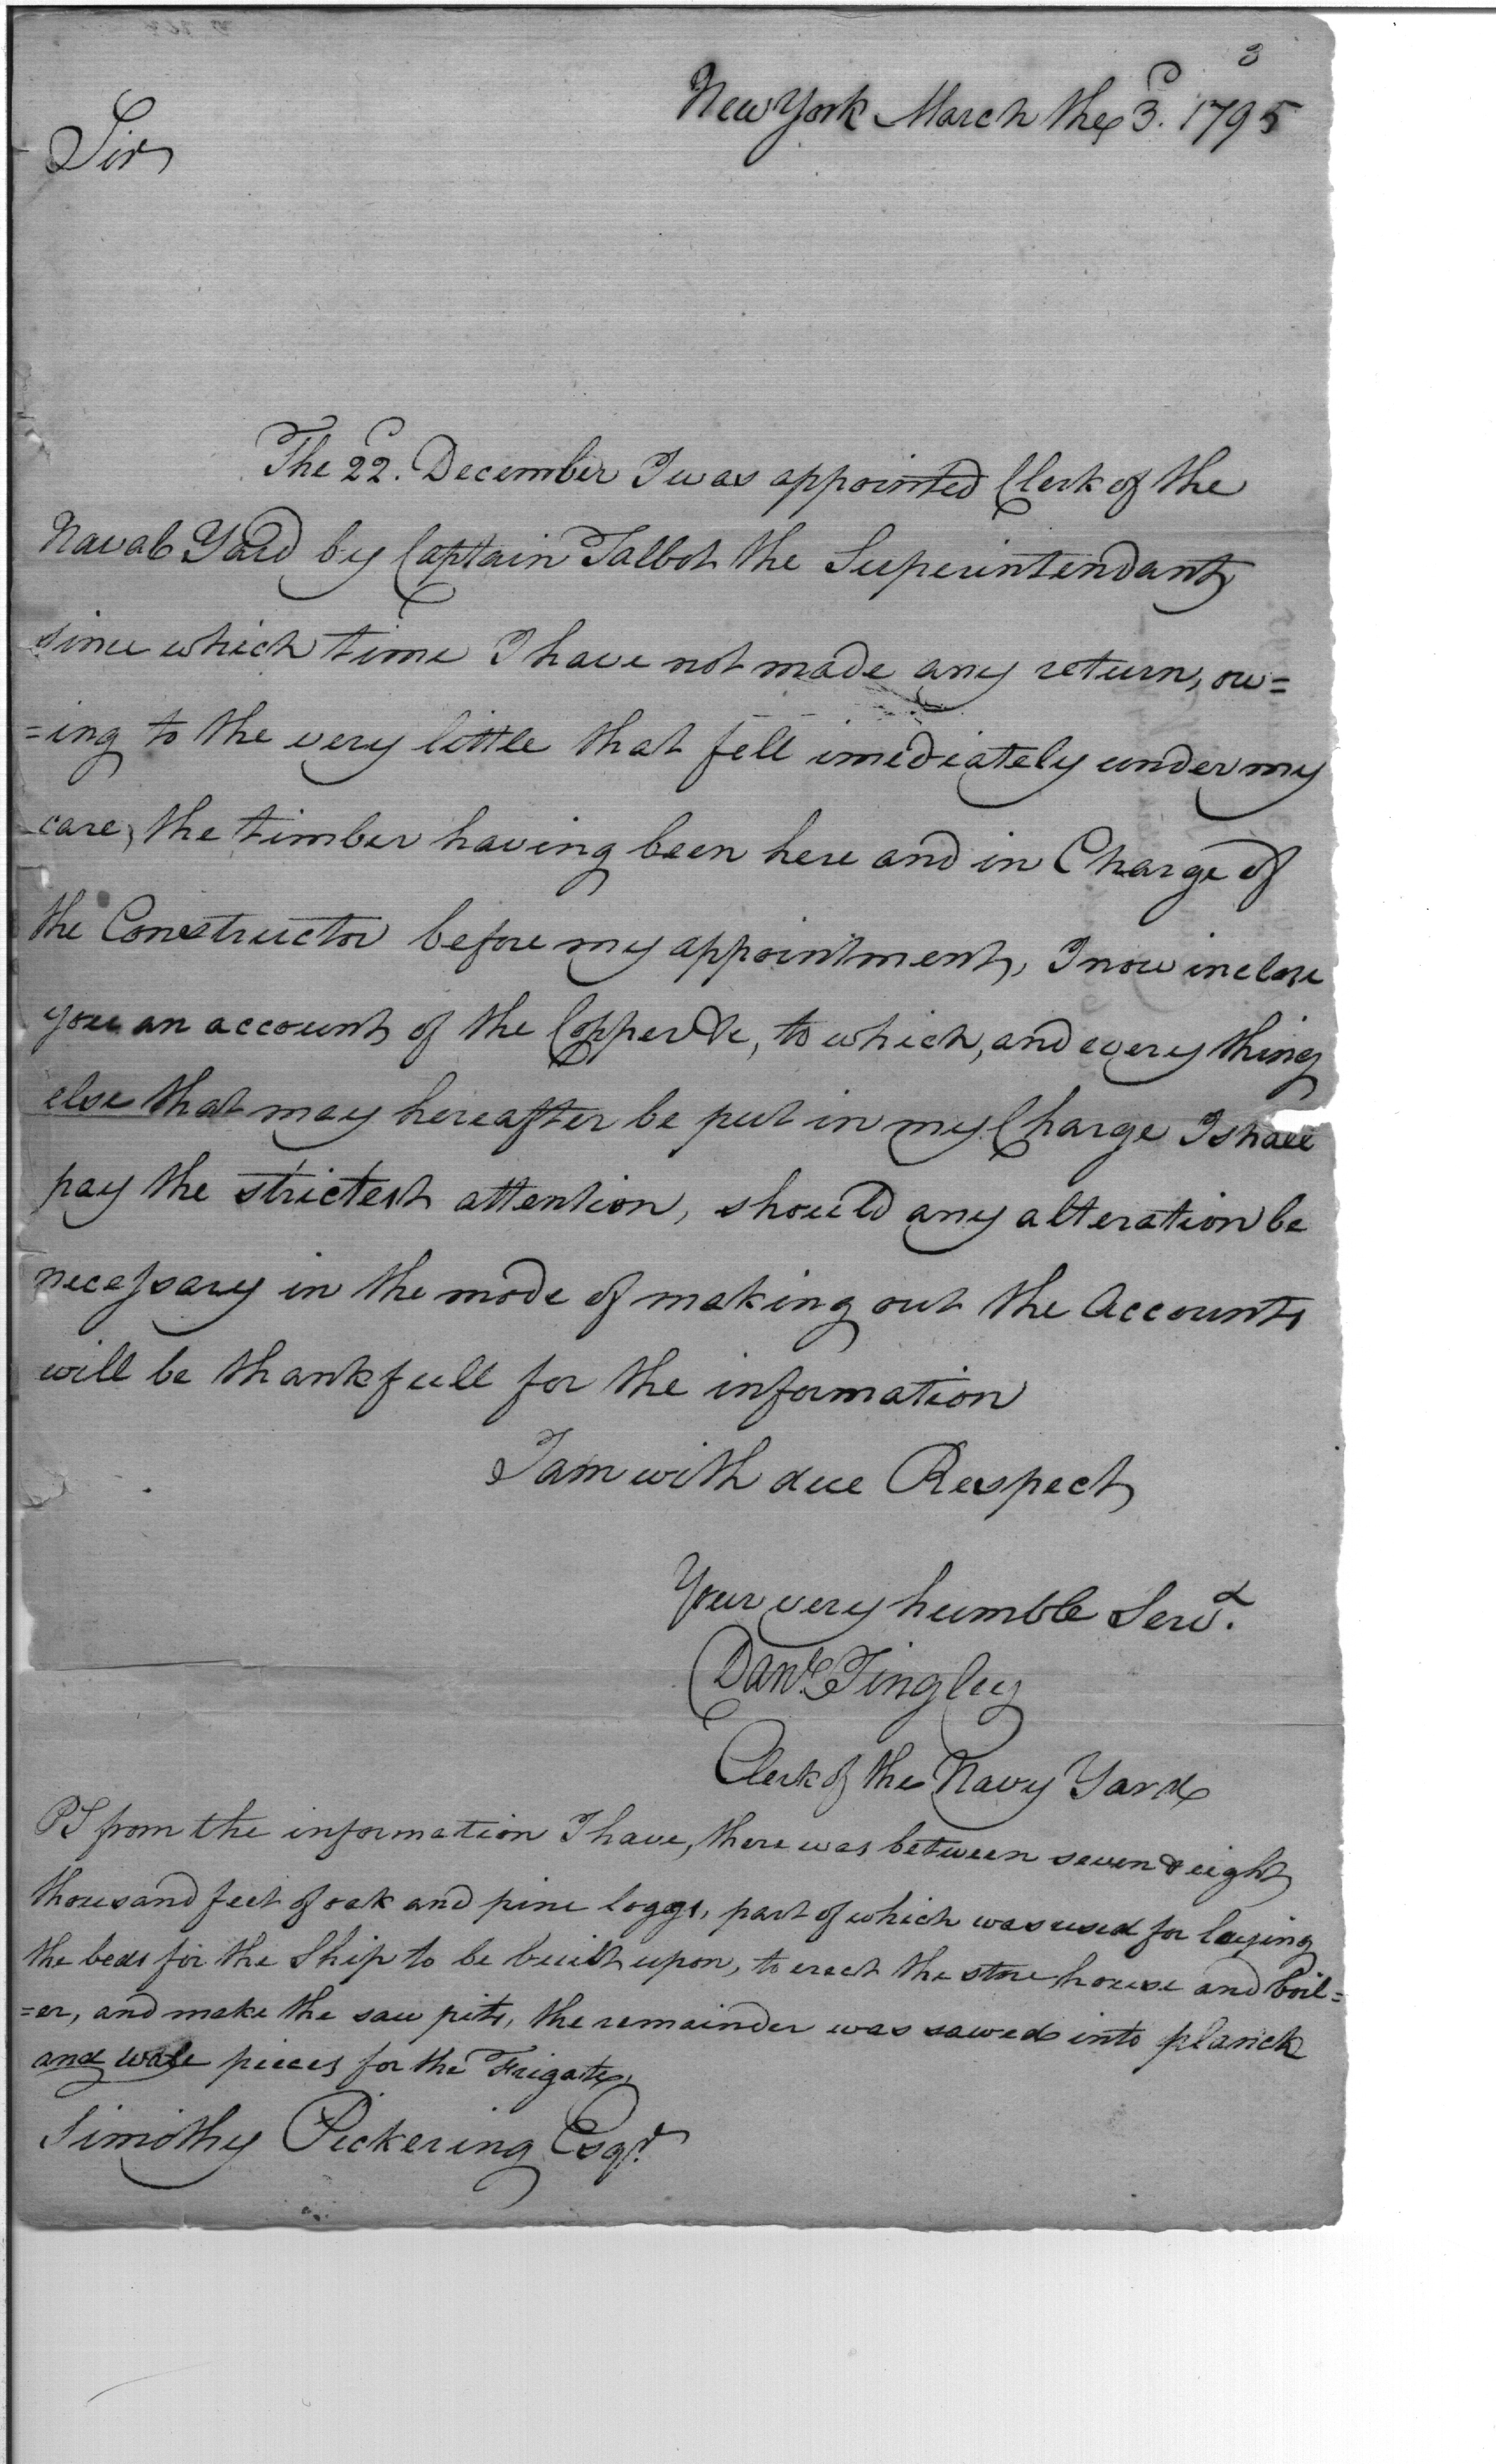 3
New York March the 3.d 1795
Sir
The 22.d December I was appointed Clerk of the
Naval Yard by Captain Talbot the Superintendant
since which time I have not made any return, ow=
=ing to the very little that fell imediately under my
care, the timber having been here and in Charge of
the Constructor before my appointment, I now inclose
you an account of the Copper &c, to which, and every thing
else that may hereafter be put in my Charge I shall
pay the strictest attention, should any alteration be
necessary in the mode of making out the Accounts
will be thankfull for the information
I am with due Respect
Your very humble Servt.
Danl. Tingley
Clerk of the Navy Yard
PS from the information I have, there was between seven & eight
thousand feet of oak and pine loggs, part of which was used for laying
the beds for the Ship to be built upon, to erect the store house and boil=
=er, and make the saw pits, the remainder was sawed into planck
and wale pieces for the Frigate,
Timothy Pickering Esqr.